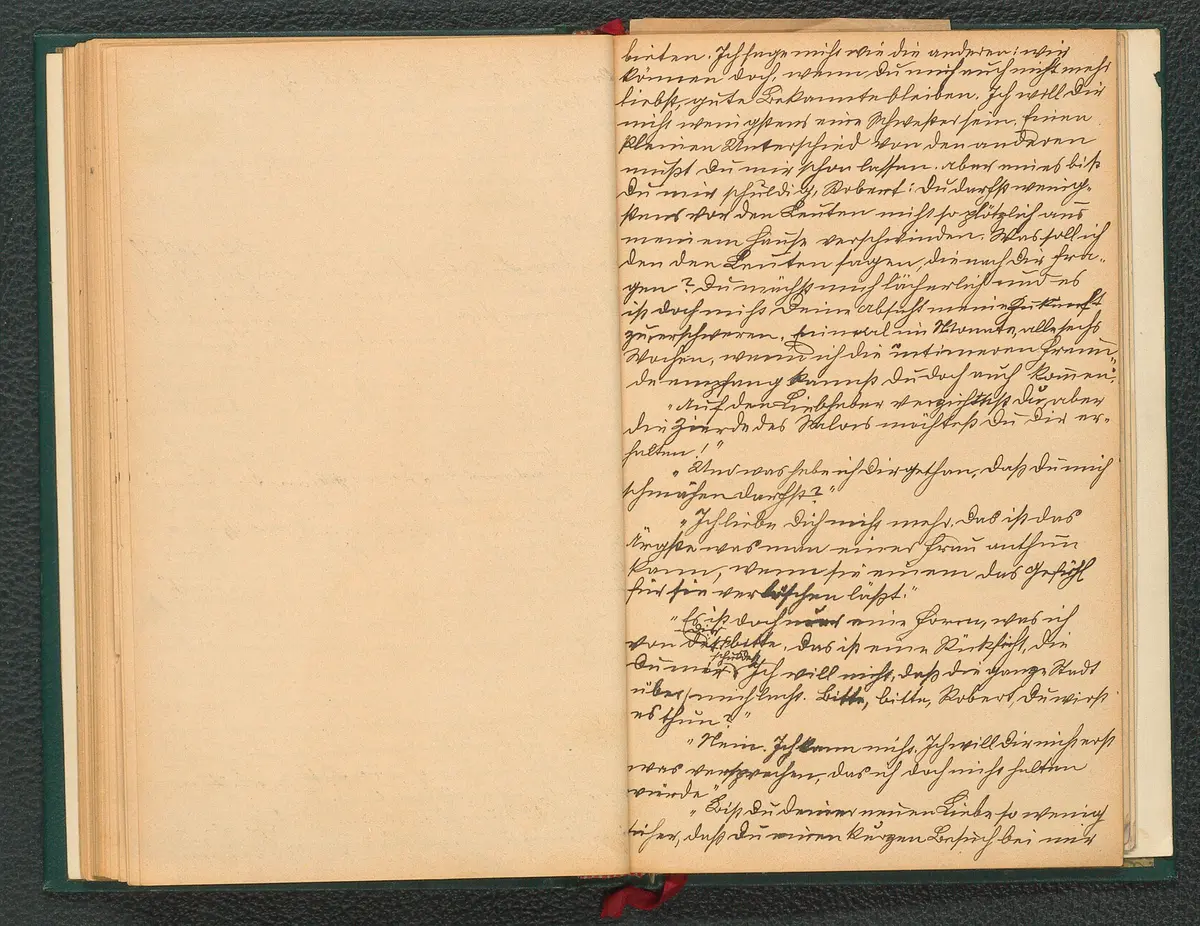 bieten. Ich sage nicht wie die anderen: wir
können doch, wenn du mich auch nicht mehr
liebst, gute Bekannte bleiben. Ich will dir
nicht wenigstens eine Schwester sein. Einen
kleinen Unterschied von den anderen
mußt du mir schon lassen. aber eines bist
du mir schuldig, Robert: du darfst wenig-
stens vor den Leuten nicht so plötzlich aus
meinem Hause verschwinden. Was soll ich
den den Leuten sagen, die nach dir fra-
gen? Du machst mich lächerlich und es
ist doch nicht deine Absicht meine Zukunft
zu erschweren. Einmal im Monate, alle sechs
Wochen, wenn ich die intimeren Freun-
de empfang kannst du doch auch kommen."
"Auf den Liebhaber verzichtest du, aber
die Zierde des Salons möchtest du dir er-
halten!"
"Und was habe ich dir gethan, daß du mich
schmähen darfst?"
"Ich liebe dich nicht mehr. Das ist das
Ärgste was man einer Frau anthun
kann, wenn sie einem das Gefühl
für sie verlöschen läßt."
"Es ist doch nur eine Form, was ich
von dir bitte. Das ist eine Rücksicht, die
du mir schuldest. Ich will nicht, daß die ganze Stadt
über mich lacht. Bitte, bitte, Robert, du wirst
es thun?"
"Nein. Ich kann nicht. Ich will dir nicht erst
was versprechen, das ich doch nicht halten
würde"
"Bist du deiner neuen Liebe so wenig
sicher, daß du einen kurzen Besuch bei mir